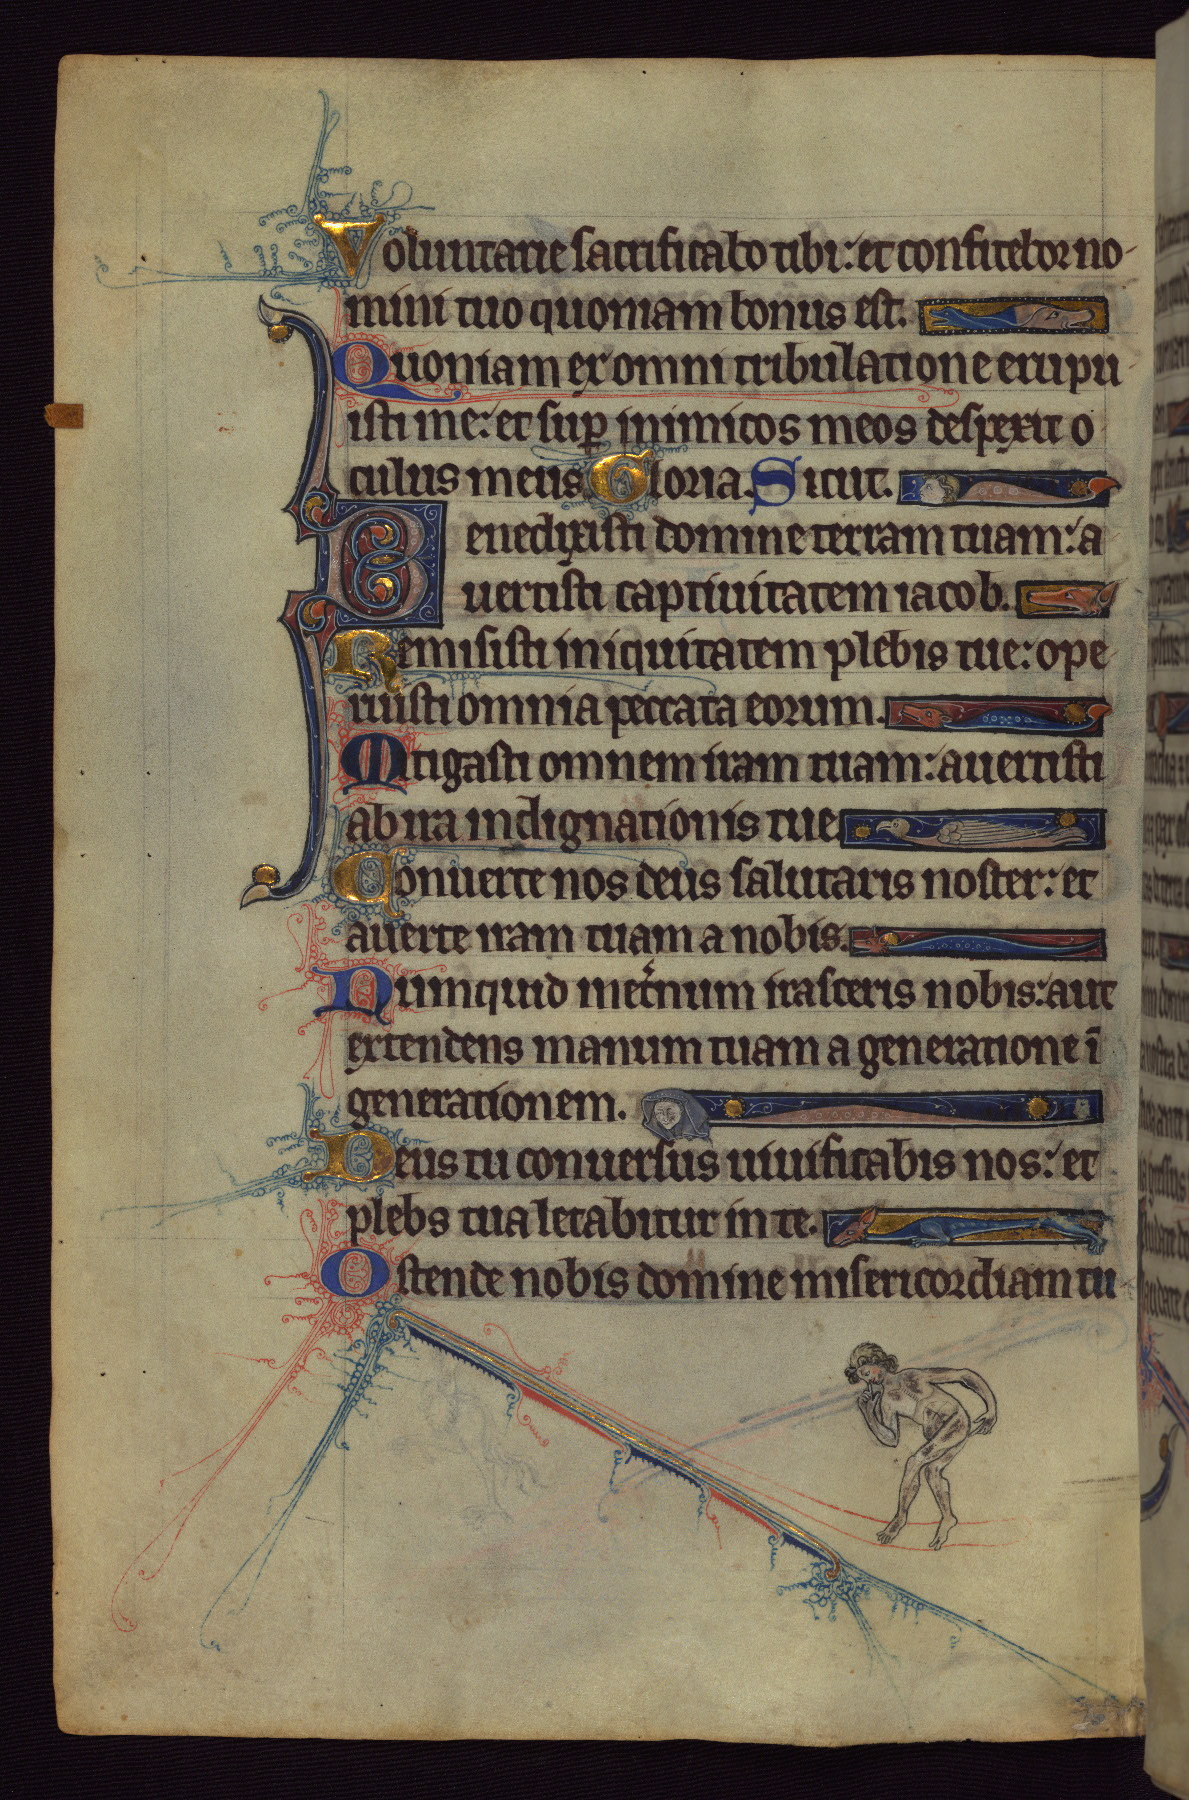 Voluntarie sacrificabo tibi: et confitebor no-
mini tuo quoniam bonus est.
Quoniam ex omni tribulatione eripu
isti me: et sup inimicos meos despexit o
culus meus Gloria. Sicut.
Benedixisti domine terram tuam: a
uertisti captiuitatem iacob.
Remisisti iniquitatem plebis tue: ope
ruisti omnia peccata eorum.
Mitigasti omnem iram tuam: auertisti
ab ira indignationis tue
Conuerte nos deus salutaris noster: et
auerte iram tuam a nobis.
Numquid in et̾num irasceris nobis: aut
extendens manum tuam a generatione ī
generationem.
Deus tu conuersus uiuificabis nos: et
plebs tua letabitur in te.
Ostende nobis domine misericordiam tu